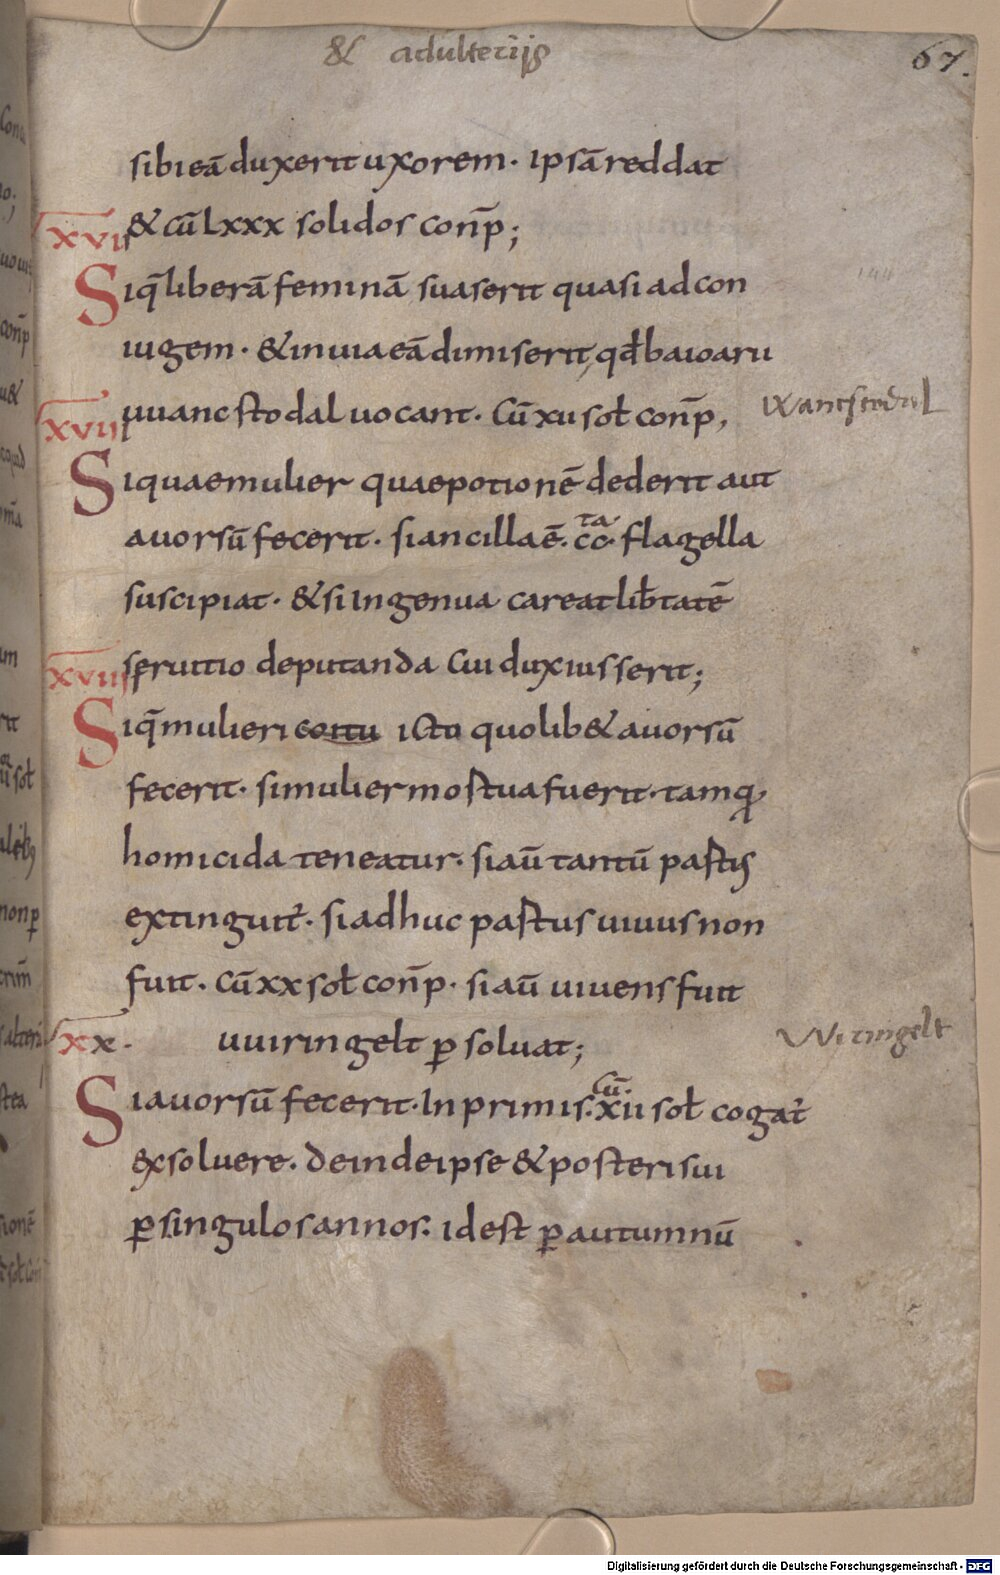 & adulterijs
67.
sibi eā duxerit uxorem. Ipsā reddat
& cū Lxxx solidos conp̄;
XVII
Siq̄ liberā feminā suaserit quasi ad con
iugem. & in uia eā dimiserit, qđ baioarii
uuancstodal uocant. Cū xii soł conp̄,
Wancstodal
XVIII
Si quae mulier quae potionē dederit aut
auorsū fecerit. si ancilla ē. cc ta flagella
suscipiat. & si Ingenua careat lib̄tatē
seruitio deputanda Cui dux iusserit;
XVIIII
Siq̄ mulieri coitu ictu quolib& auorsū
fecerit. si mulier mostua fuerit. tamq;
homicida teneatur. si aū tantū pastus
extinguit̄. si adhuc pastus uiuus non
fuit. Cū xx soł conp̄. si aū uiuens fuit
XX.
uuiringelt p̱ soluat;
Wiringelt
Si auorsū fecerit. In primis. Cū. xii soł cogat̄
exsoluere. deinde ipse & posteri sui
p̱ singulos annos. id est p̱ autumnū
Digitalisierung gefördert durch die Deutsche Forschungsgemeinschaft - DFG